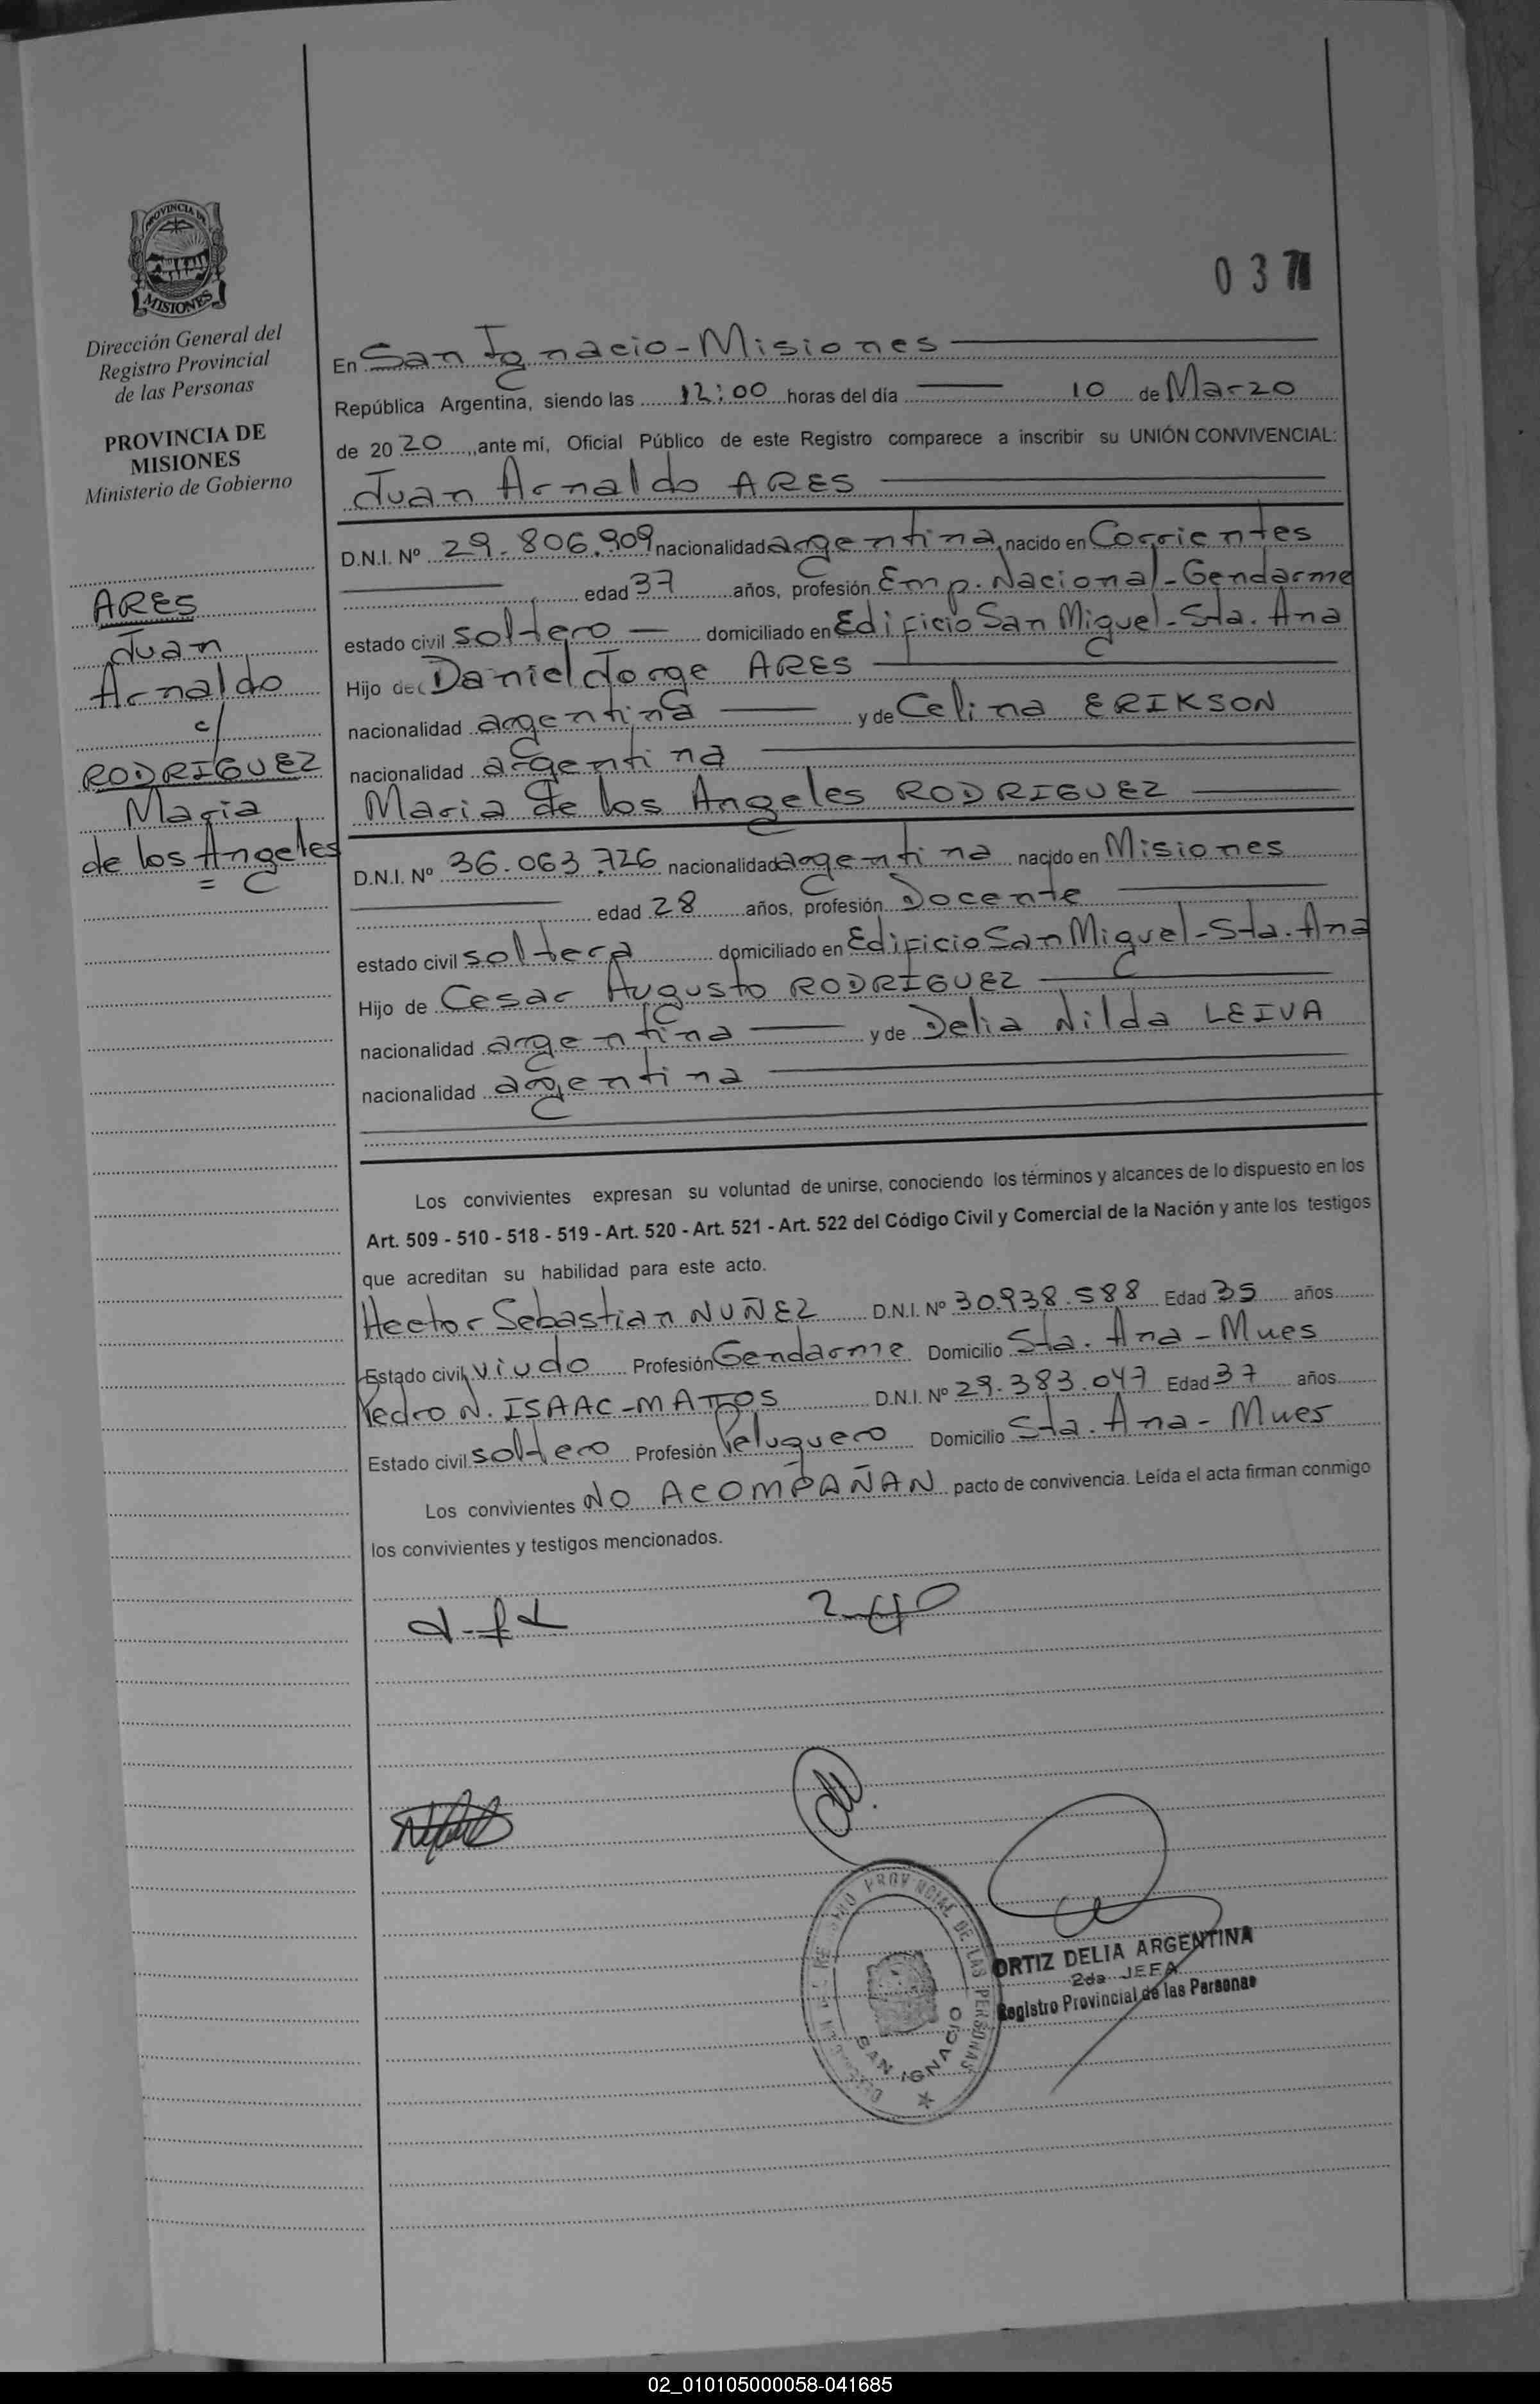 PROVINCIA DE
MISIONES
Dirección General del
Registro Provincial
de las Personas
PROVINCIA DE
MISIONES
Ministerio de Gobierno
ARES
Juan
Arnaldo
c/
RODRIGUEZ
Maria
de los Angeles
=
037
En San Ignacio - Misiones
República Argentina, siendo las 12:00 horas del día 10 de Marzo
de 2020, ante mí, Oficial Público de este Registro comparece a inscribir su UNIÓN CONVIVENCIAL:
Juan Arnaldo ARES
D.N.I. Nº 29.806.909 nacionalidad argentina nacido en Corrientes
edad 37 años, profesión Emp. Nacional - Gendarme
estado civil soltero — domiciliado en Edificio San Miguel - Sta. Ana
Hijo de Daniel Jorge ARES
nacionalidad argentina y de Celina ERIKSON
nacionalidad argentina
Maria de los Angeles RODRIGUEZ
D.N.I. Nº 36.063.726 nacionalidad argentina nacido en Misiones
edad 28 años, profesión Docente
estado civil soltera domiciliado en Edificio San Miguel - Sta. Ana
Hijo de Cesar Augusto RODRIGUEZ
nacionalidad argentina y de Delia Nilda LEIVA
nacionalidad argentina
Los convivientes expresan su voluntad de unirse, conociendo los términos y alcances de lo dispuesto en los
Art. 509 - 510 - 518 - 519 - Art. 520 - Art. 521 - Art. 522 del Código Civil y Comercial de la Nación y ante los testigos
que acreditan su habilidad para este acto.
Hector Sebastian NUÑEZ D.N.I. Nº 30.938.588 Edad 35 años
Estado civil viudo Profesión Gendarme Domicilio Sta. Ana - Mnes
Pedro N. ISAAC-MATTOS D.N.I. Nº 29.383.047 Edad 37 años
Estado civil soltero Profesión Peluquero Domicilio Sta. Ana - Mnes
Los convivientes NO ACOMPAÑAN pacto de convivencia. Leída el acta firman conmigo
los convivientes y testigos mencionados.
PROVINCIAL DE LAS PERSONAS
SAN IGNACIO
ORTIZ DELIA ARGENTINA
2da JEFA
Registro Provincial de las Personas
02_010105000058-041685